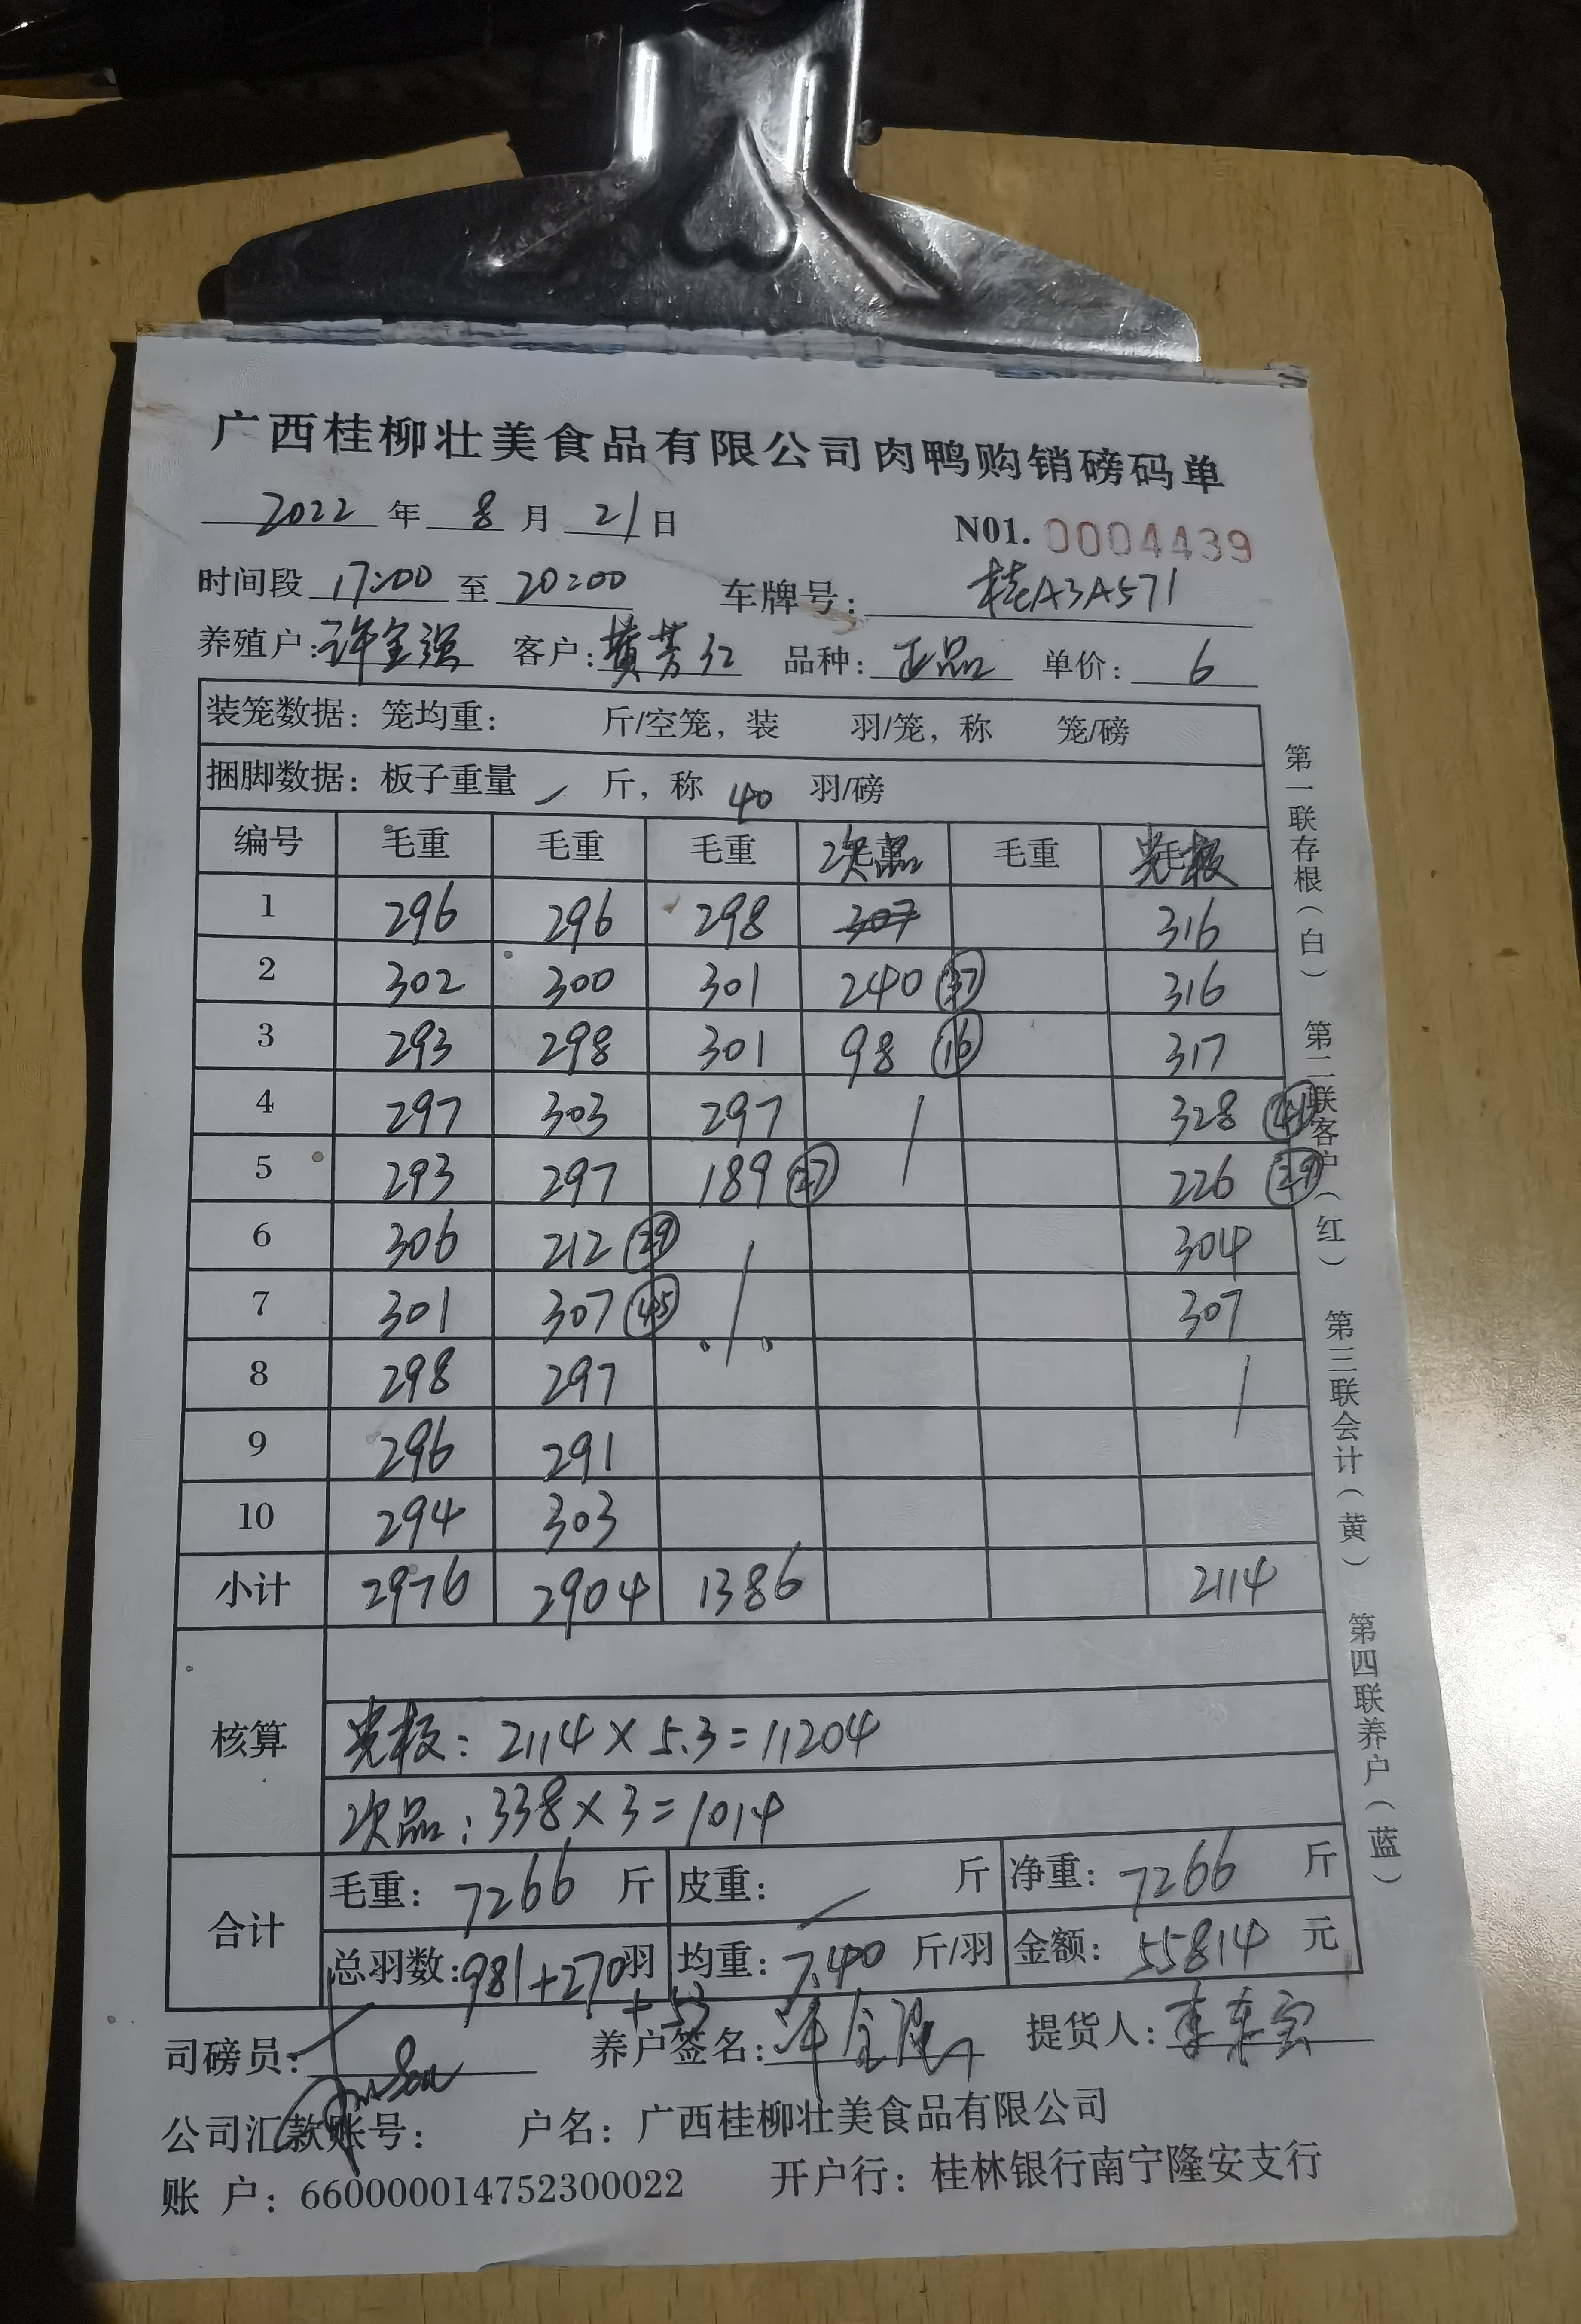 广西桂柳壮美食品有限公司肉鸭购销磅码单
2022 年 8 月 21 日 N01. 0004439
时间段 17:00 至 20:00 车牌号: 桂A3A571
养殖户: 许金强 客户: 黄芳红 品种: 正品 单价: 6
装笼数据: 笼均重: 斤/空笼, 装 羽/笼, 称 笼/磅
捆脚数据: 板子重量 / 斤, 称 40 羽/磅
编号 毛重 毛重 毛重 次品 毛重 光板
1 296 296 298 307 316
2 302 300 301 240 37 316
3 293 298 301 98 16 317
4 297 303 297 / 328 41
5 293 297 189 27 226 29
6 306 212 29 / 304
7 301 307 45 307
8 298 297 /
9 296 291
10 294 303
小计 2976 2904 1386 2114
核算
光板: 2114 × 5.3 = 11204
次品: 338 × 3 = 1014
合计
毛重: 7266 斤 皮重: / 斤 净重: 7266 斤
总羽数: 981+270羽 均重: 7.40 斤/羽 金额: 55814 元
+53
司磅员: 养户签名: 许金强 提货人:
公司汇款账号: 户名: 广西桂柳壮美食品有限公司
账 户: 660000014752300022 开户行: 桂林银行南宁隆安支行
第一联存根(白) 第二联客户(红) 第三联会计(黄) 第四联养户(蓝)